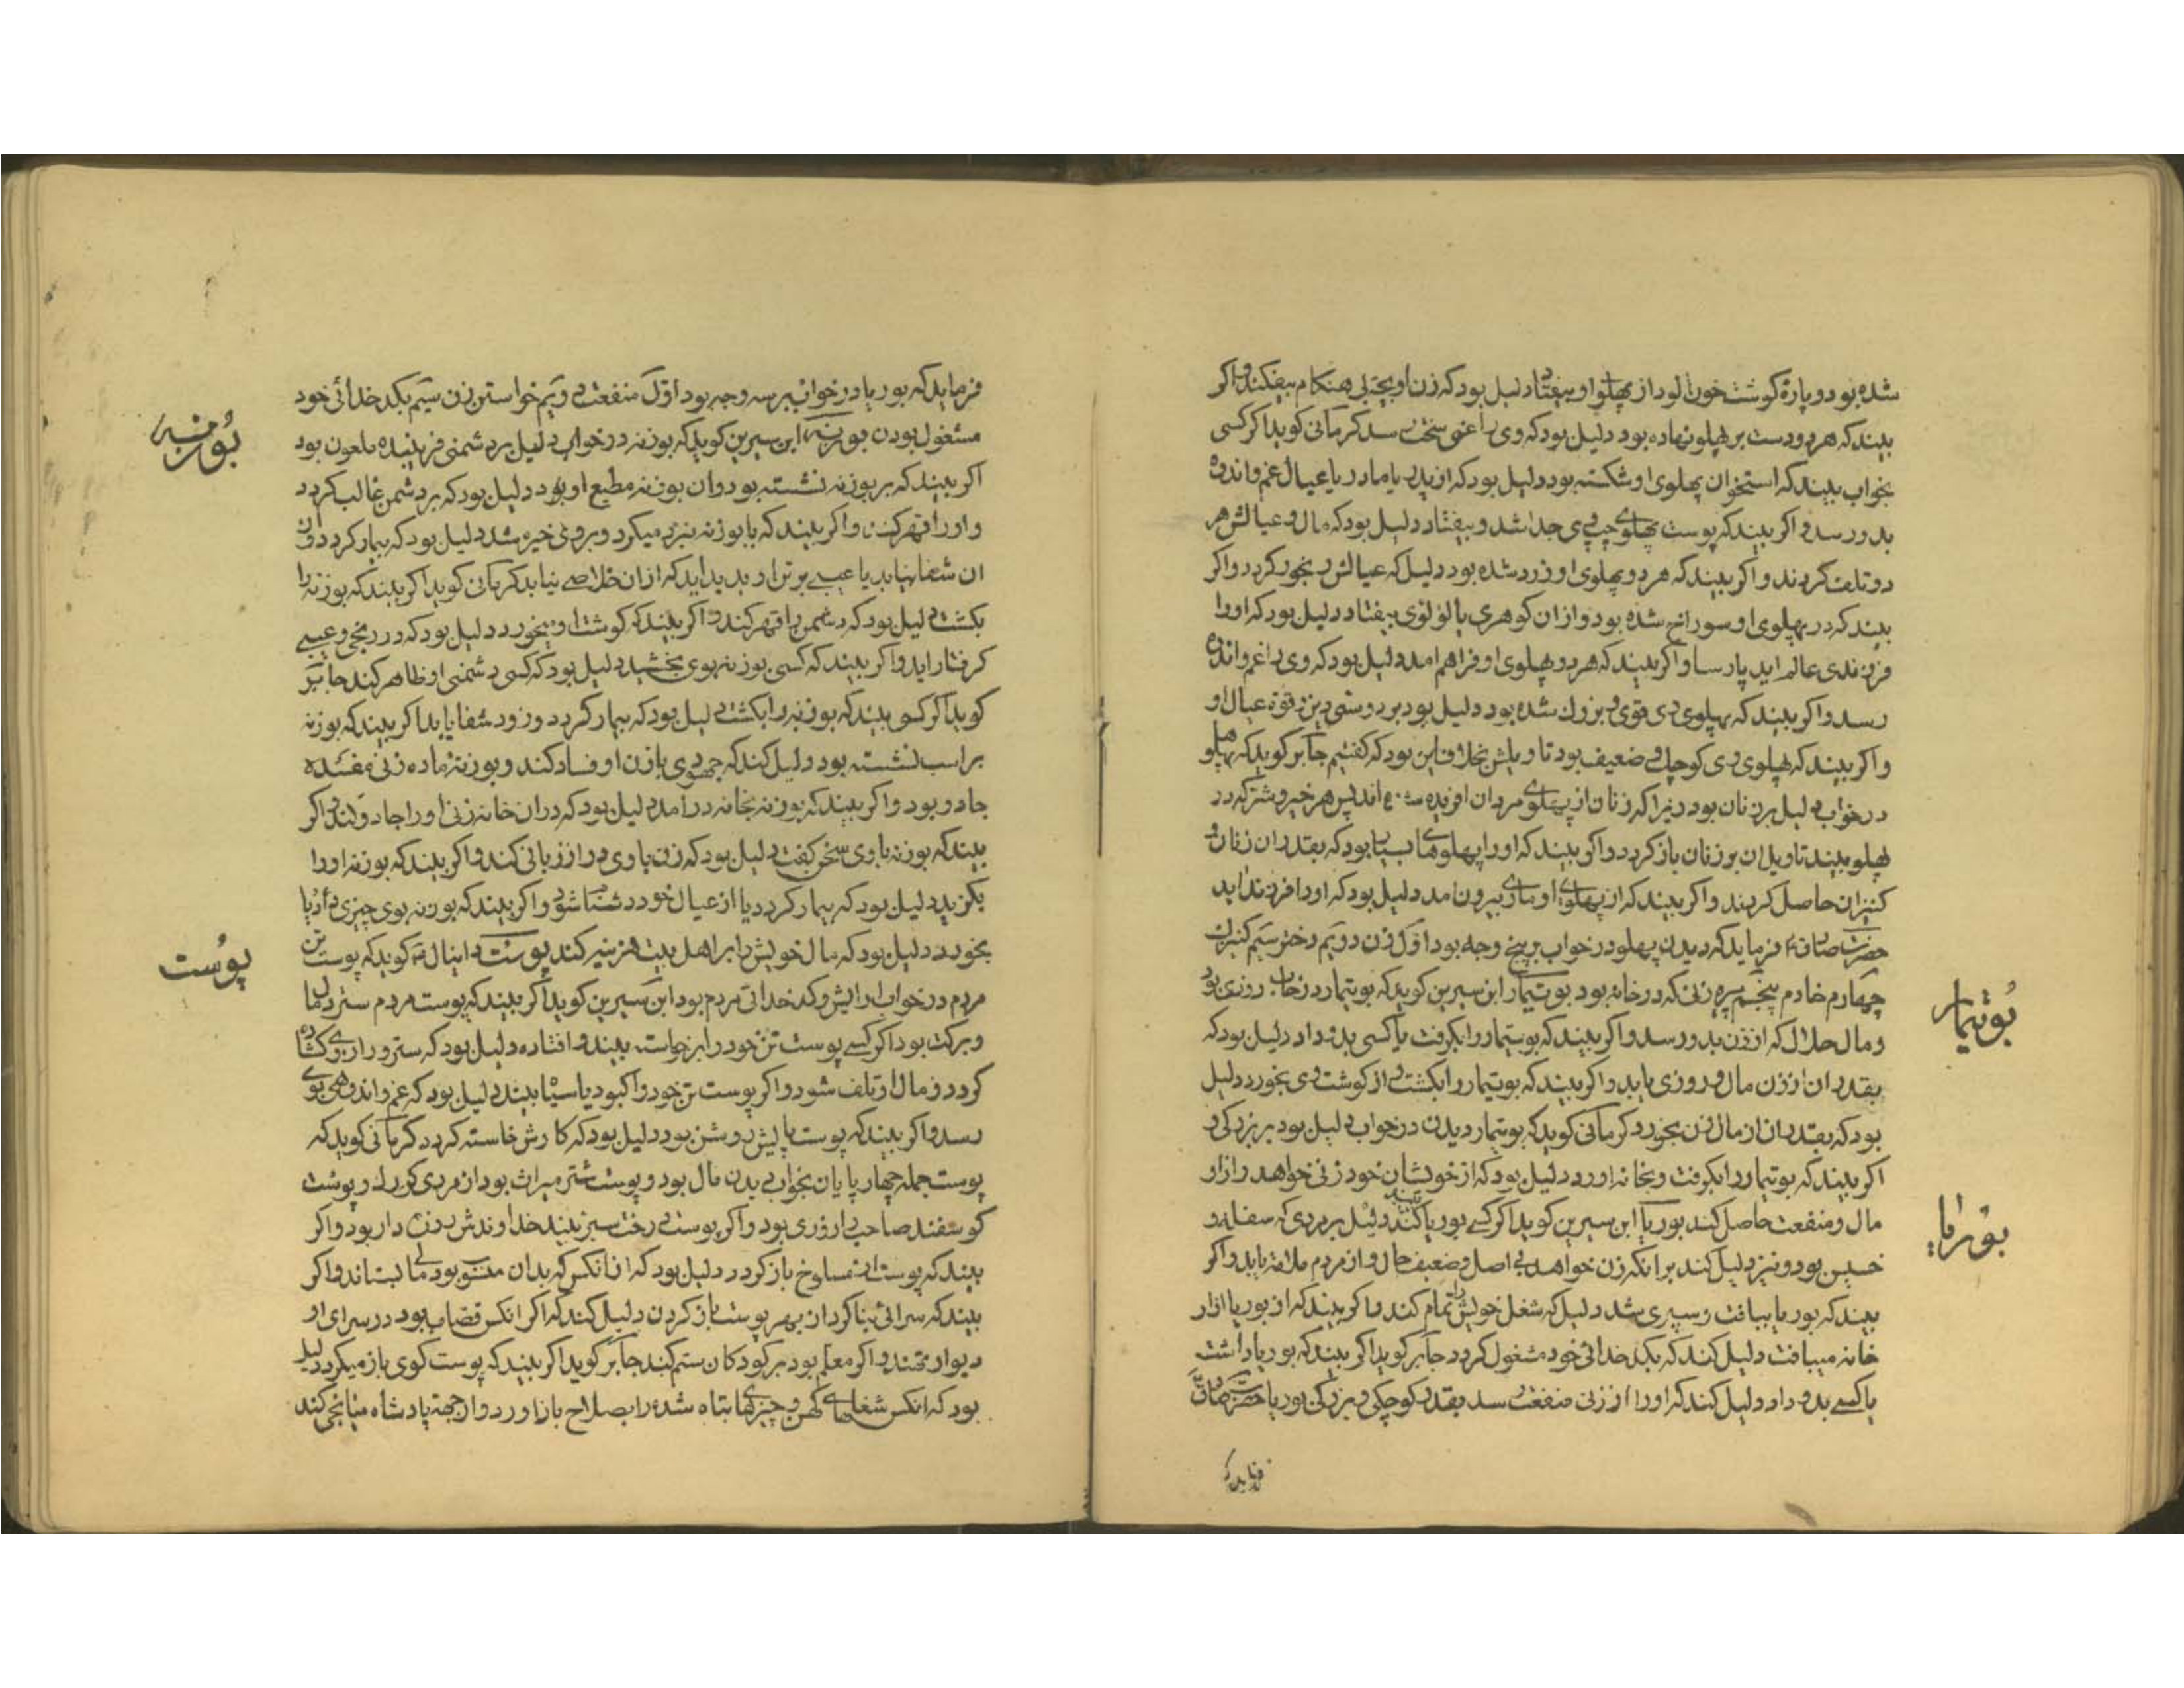 شده بود و پارهٔ گوشت خون آلود از پهلوی او بیفتاد دلیل بود که زن او بچه بی هنکام بیفکند و اکر
بیند که هر دو دست بر پهلو نهاده بود دلیل بود که وی را غمی سخت رسد کرمانی کوید اکر کسی
بخواب بیند که استخوان پهلوی او شکسته بود دلیل بود که از پدر یا مادر یا عیال غم و اندوه
بدو رسد و اکر بیند که پوست پهلوی چپ وی جدا شد و بیفتاد دلیل بود که مال و عیالش هر
دو تلف کردند و اکر بیند که هر دو پهلوی او زرد شده بود دلیل که عیالش رنجور کردد و اکر
بیند که در پهلوی او سوراخ شده بود و از ان کوهری یا لؤلؤی بیفتاد دلیل بود که او را
فرزندی عالم اید پارسا و اکر بیند که هر دو پهلوی او فراهم امد دلیل بود که وی را غم و اندوه
رسد و اکر بیند که پهلوی وی قوی و بزرك شده بود دلیل بود بر درستی دین و قوة عیال او
و اکر بیند که پهلوی وی کوچك و ضعیف بود تاویلش بخلاف این بود که کفتیم جابر کوید که پهلو
در خواب دلیل بر زنان بود زیرا که زنان از پهلوی مردان افریده شده اند پس هر خیر و شر که در
پهلو بیند تاویل ان بر زنان باز کردد و اکر بیند که او را پهلوهای بسیار بود که بقدر ان زنان و
کنیزان حاصل کردند و اکر بیند که از پهلوی او ماری بیرون امد دلیل بود که او را فرزند اید
حضرت صادق ع فرماید که دیدن پهلو در خواب بر پنج وجه بود اول زن دویم دختر سیم کنیزك
چهارم خادم پنجم پیره زنی که در خانه بود بوتیمار ابن سیرین کوید که بوتیمار در خواب روزی بود
و مال حلال که از زن بدو رسد و اکر بیند که بوتیمار را بکرفت یا کسی بدو داد دلیل بود که
بقدر ان از زن مال و روزی یابد و اکر بیند که بوتیمار را بکشت و از کوشت وی بخورد دلیل
بود که بقدر ان از مال زن بخورد کرمانی کوید که بوتیمار دیدن در خواب دلیل بود بر زیرکی و
اکر بیند که بوتیمار را بکرفت و بخانه اورد دلیل بود که از خویشان خود زنی خواهد و از او
مال و منفعت حاصل کند بوریا ابن سیرین کوید اکر کسی بوریا بیند دلیل بر مردی که سفله و
خسیس بود و نیز دلیل کند بر انکه زن خواهد بی اصل و ضعیف حال و از مردم ملامت یابد و اکر
بیند که بوریا ببافت و سپری شد دلیل که شغل خویش را تمام کند و اکر بیند که از بوریا ازار
خانه میبافت دلیل کند که بکدخدائی خود مشغول کردد جابر کوید اکر بیند که بوریا داشت
یا کسی بدو داد دلیل کند که او را از زنی منفعت رسد بقدر کوچکی و بزرکی بوریا حضرت صادق ع
فرماید که
بوتیمار
بوریا
فرماید که بوریا در خواب بر سه وجه بود اول منفعت دویم خواستن زن سیم بکدخدائی خود
مشغول بودن بوزینه ابن سیرین کوید که بوزنه در خواب دلیل بر دشمنی فریبنده ملعون بود
اکر بیند که بر بوزنه نشسته بود و ان بوزنه مطیع او بود دلیل بود که بر دشمن غالب کردد
و او را قهر کند و اکر بیند که با بوزنه نبرد میکرد و بر وی خیره شد دلیل بود که بیمار کردد و از
ان شفا نیابد یا عیبی بر تن او پدید اید که از ان خلاصی نیابد کرمانی کوید اکر بیند که بوزنه را
بکشت دلیل بود که دشمن را قهر کند و اکر بیند که کوشت او بخورد دلیل بود که در رنجی و عیبی
کرفتار اید و اکر بیند که کسی بوزنه بوی بخشید دلیل بود که کسی دشمنی او ظاهر کند جابر
کوید اکر کسی بیند که بوزنه را بکشت دلیل بود که بیمار کردد و زود شفا یابد اکر بیند که بوزنه
بر اسب نشسته بود دلیل کند که جهودی با زن او فساد کند و بوزنه ماده زنی مفسده
جادو بود و اکر بیند که بوزنه بخانه در امد دلیل بود که در ان خانه زنی او را جادو کند و اکر
بیند که بوزنه با وی سخن کفت دلیل بود که زن با وی دراز زبانی کند و اکر بیند که بوزنه او را
بکزید دلیل بود که بیمار کردد یا از عیال خود دشنام شنود و اکر بیند که بوزنه بوی چیزی داد یا
بخورد دلیل بود که مال خویش را بر اهل بیت هزینه کند پوست دانیال ع کوید که پوست تن
مردم در خواب ارایش و کدخدائی مردم بود ابن سیرین کوید اکر بیند که پوست مردم ستر و مال
و برکت بود اکر کسی پوست تن خود را برخاسته بیند و افتاده دلیل بود که ستر و راز وی کشاده
کردد و مال او تلف شود و اکر پوست تن خود را کبود یا سیاه بیند دلیل بود که غم و اندوهی بوی
رسد و اکر بیند که پوست پایش روشن بود دلیل بود که کارش خاسته کردد کرمانی کوید که
پوست جمله چهارپایان بخواب دیدن مال بود و پوست شتر میراث بود از مردی بزرك و پوست
کوسفند صاحب روزی بود و اکر پوست درخت سبز بیند خداوندش روزن دار بود و اکر
بیند که پوست از مسلوخ باز کردد دلیل بود که از انکس که بدان منسوب بود مالی بستاند و اکر
بیند که سرائی بنا کرد از بهر پوست باز کردن دلیل کند که اکر انکس قصاب بود در سرای او
دیوار افتند و اکر معلم بود بر کودکان ستم کند جابر کوید اکر بیند که پوست کوی باز میکرد دلیل
بود که انکس شغلهای کهن و چیزهای تباه شده را بصلاح باز اورد و از جهة پادشاه میانجی کند
بوزینه
پوست